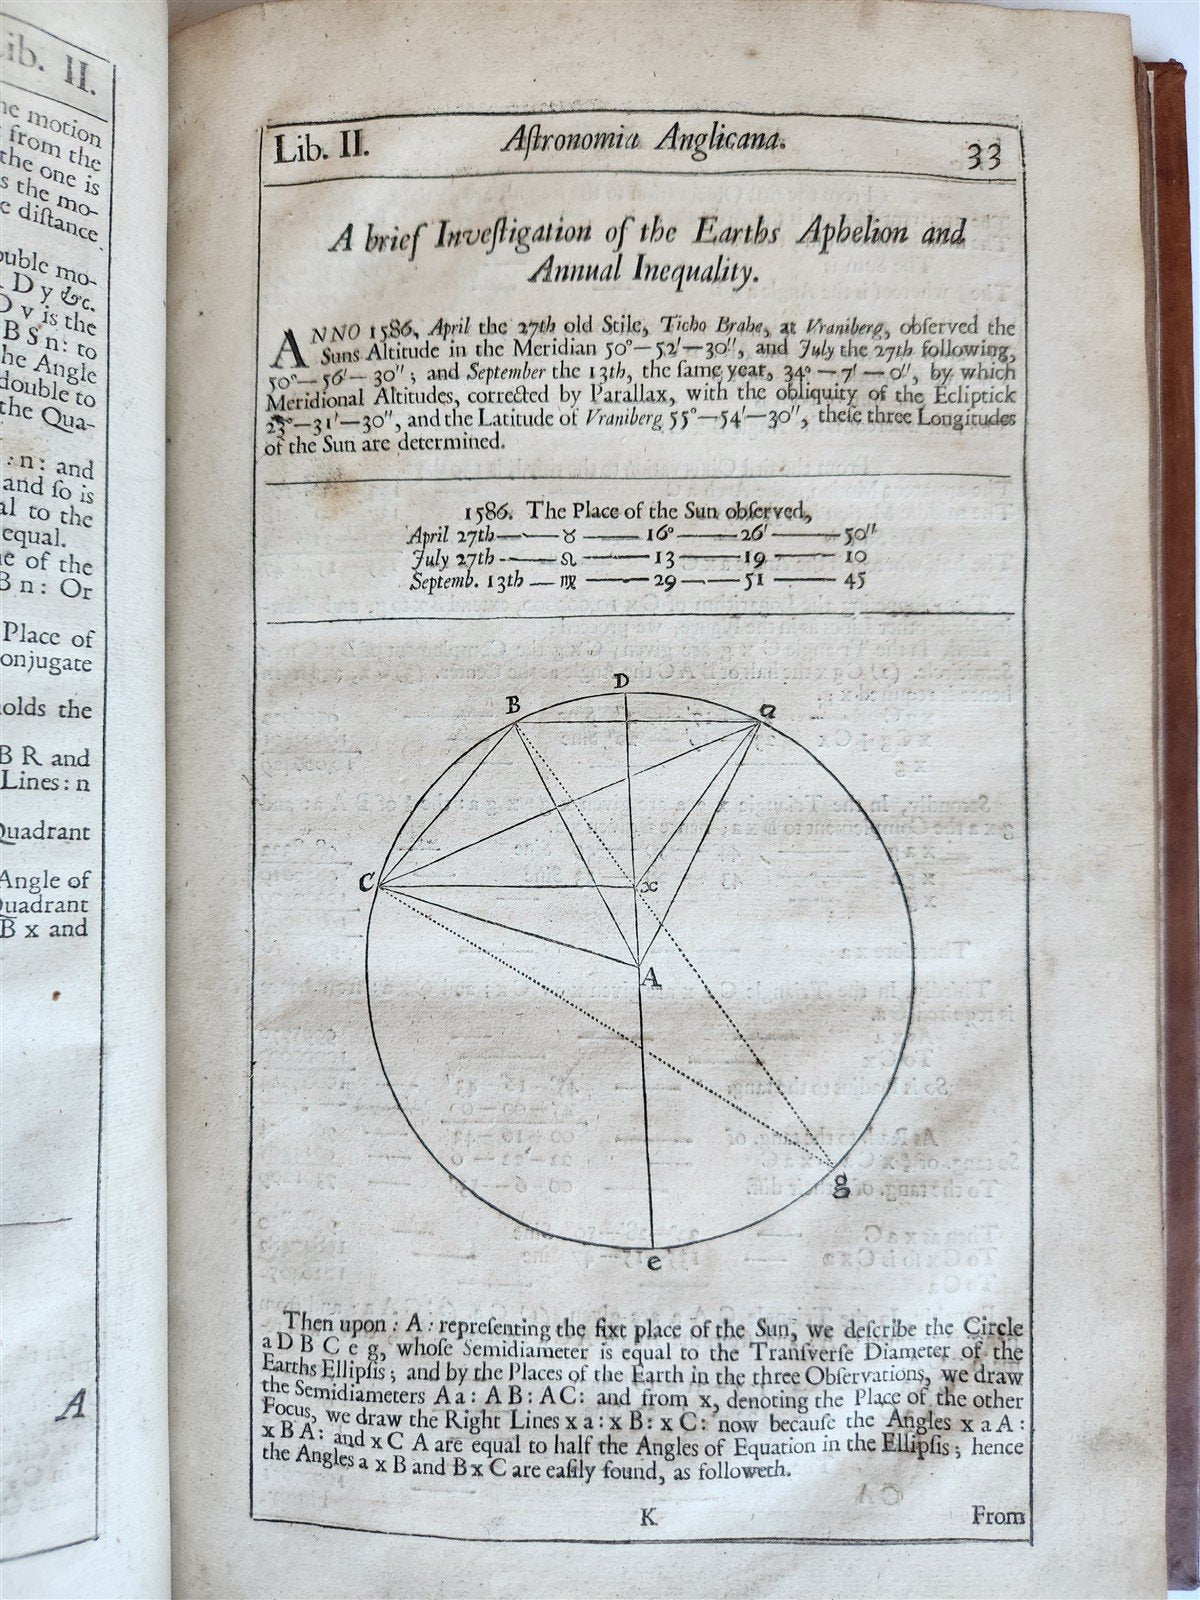 Lib. II.
he motion
from the
the one is
s the mo-
e diſtance
ouble mo-
D y &c.
D v is the
B S n: to
he Angle
double to
the Qua-
: n: and
and ſo is
al to the
equal.
e of the
B n: Or
Place of
onjugate
olds the
B R and
Lines: n
Quadrant
Angle of
Quadrant
B x and
A
Lib. II. Aſtronomia Anglicana. 33
A brief Inveſtigation of the Earths Aphelion and
Annual Inequality.
ANNO 1586, April the 27th old Stile, Ticho Brahe, at Vraniberg, obſerved the
Suns Altitude in the Meridian 50°—52′—30″, and July the 27th following,
50°—56′—30″; and September the 13th, the ſame year, 34°—7′—0″, by which
Meridional Altitudes, corrected by Parallax, with the obliquity of the Ecliptick
23°—31′—30″, and the Latitude of Vraniberg 55°—54′—30″, theſe three Longitudes
of the Sun are determined.
1586. The Place of the Sun obſerved,
April 27th——♉——16°——26′——50″
July 27th——♌——13——19——10
Septemb. 13th—♍——29——51——45
D
B
a
C
x
A
g
e
Then upon: A: repreſenting the fixt place of the Sun, we deſcribe the Circle
a D B C e g, whoſe Semidiameter is equal to the Tranſverſe Diameter of the
Earths Ellipſis; and by the Places of the Earth in the three Obſervations, we draw
the Semidiameters A a: A B: A C: and from x, denoting the Place of the other
Focus, we draw the Right Lines x a: x B: x C: now becauſe the Angles x a A:
x B A: and x C A are equal to half the Angles of Equation in the Ellipſis; hence
the Angles a x B and B x C are eaſily found, as followeth.
K From